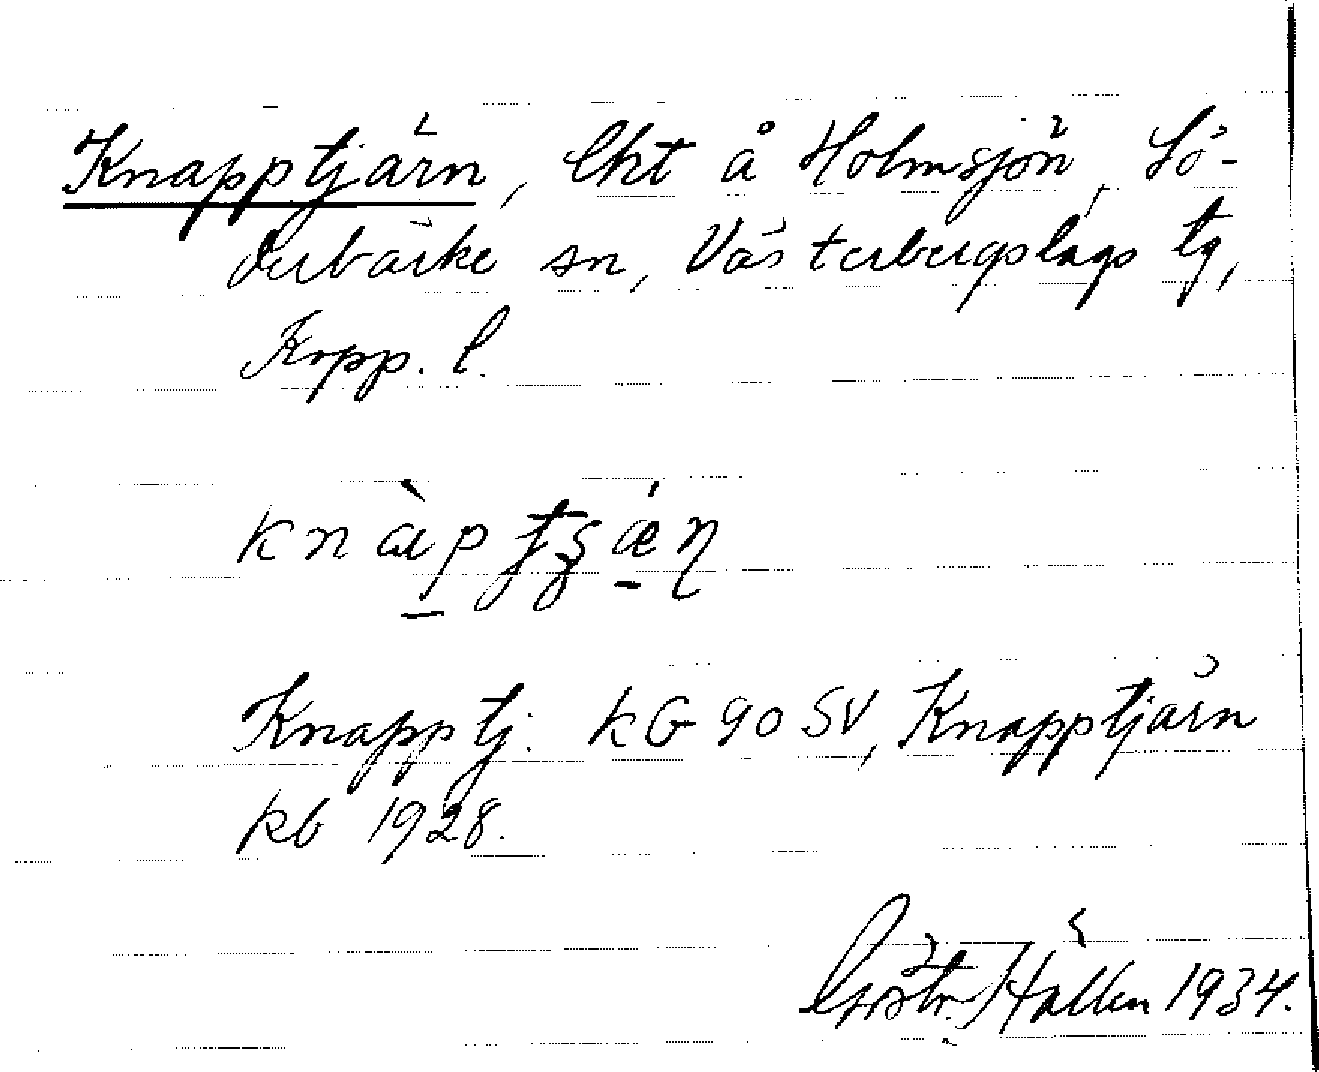 Knapptjärn, lht å Holmsjön, Sö-
derbärke sn, Västerbergslags tg,
Kopp. l.
Knapptj. kG 90 SV, Knapptjärn
kb 1928.
Hallén 1934.